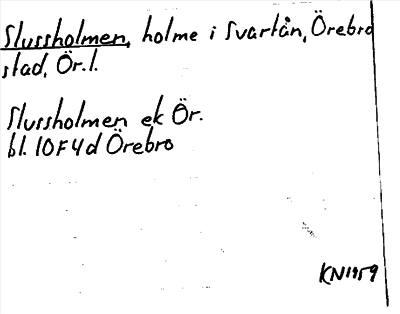 Slussholmen, holme i Svartån, Örebro
stad, Ör. l.
Slussholmen ek Ör.
bl. 10F4d Örebro
KN 1959